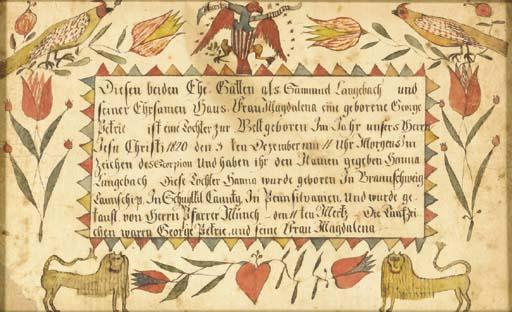 Diesen beiden Ehe Gatten als Sammuel Langebach und
seiner Ehrsamen Haus Frau Magdalena eine geborene George
ist eine Tochter zur Welt geboren Im Jahr unsers Herrn
Jesu Christi 1820 den 3 ten Dezember um 11 Uhr Morgens im
zeichen des Scorpion Und haben ihr den Namen gegeben Hanna
Langebach Diese Tochter Hanna wurde geboren In Braunschweig
Taunschip In Schuilkil Caunty In Pennsilvanien Und wurde ge
tauft von Herrn Pfarrer Münch den 11 ten Mertz Die Taufzei
chen waren George und seine Frau Magdalena